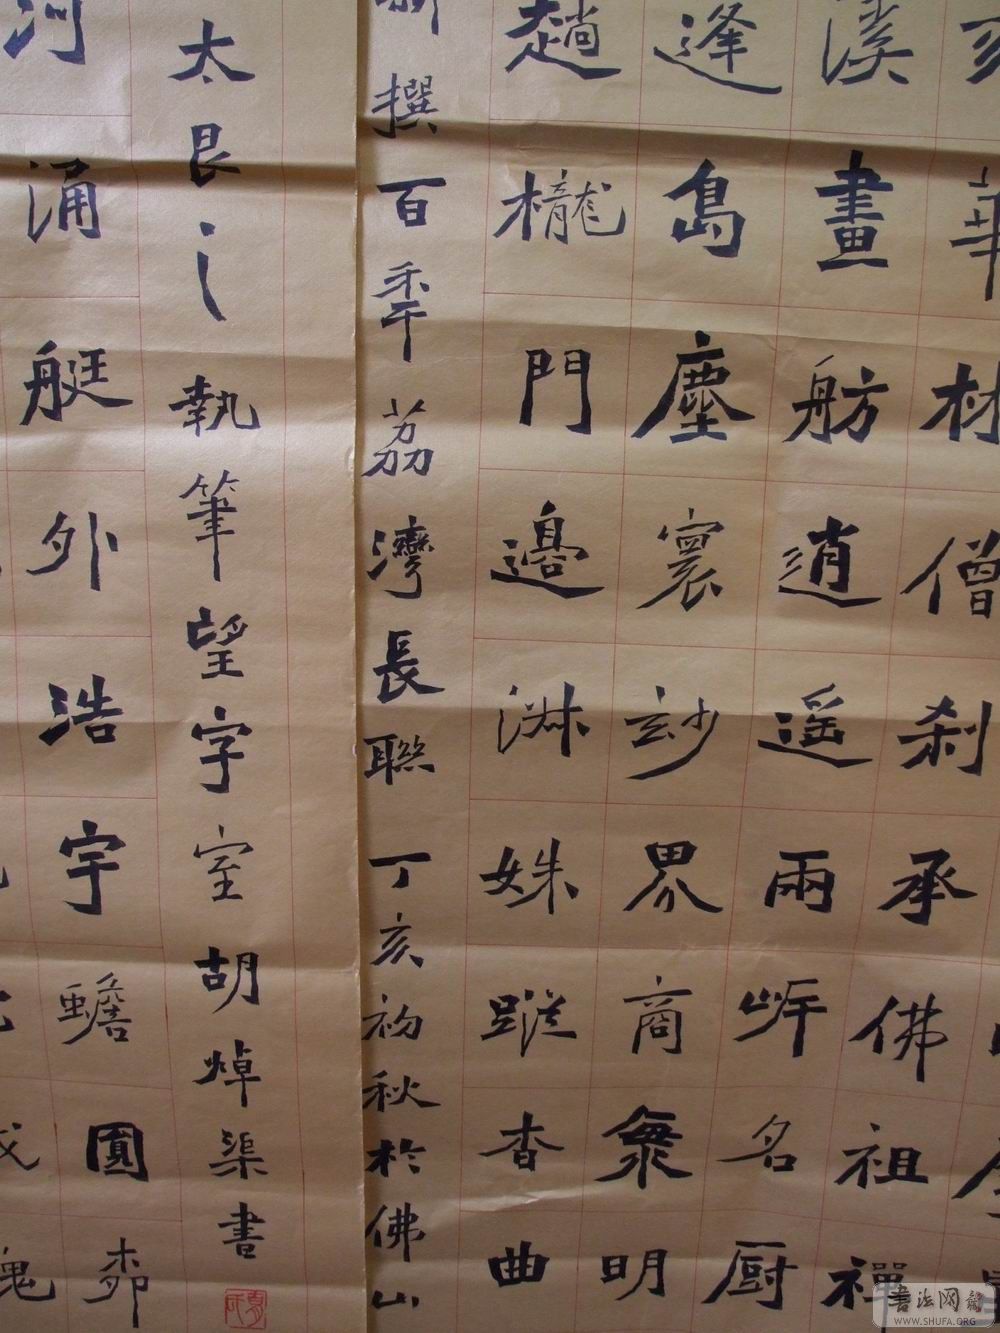 華材僧刹承佛祖禪
溪畫舫逍遥兩岍名厨
逢島塵寰玅界商衆明
趟櫳門邊淋姝蹤杳曲
撰百秊荔灣長聯丁亥初秋於佛山
太艮之執筆望字室胡焯渠書
河涌艇外浩宇蟾圓
書法网
WWW.SHUFA.ORG